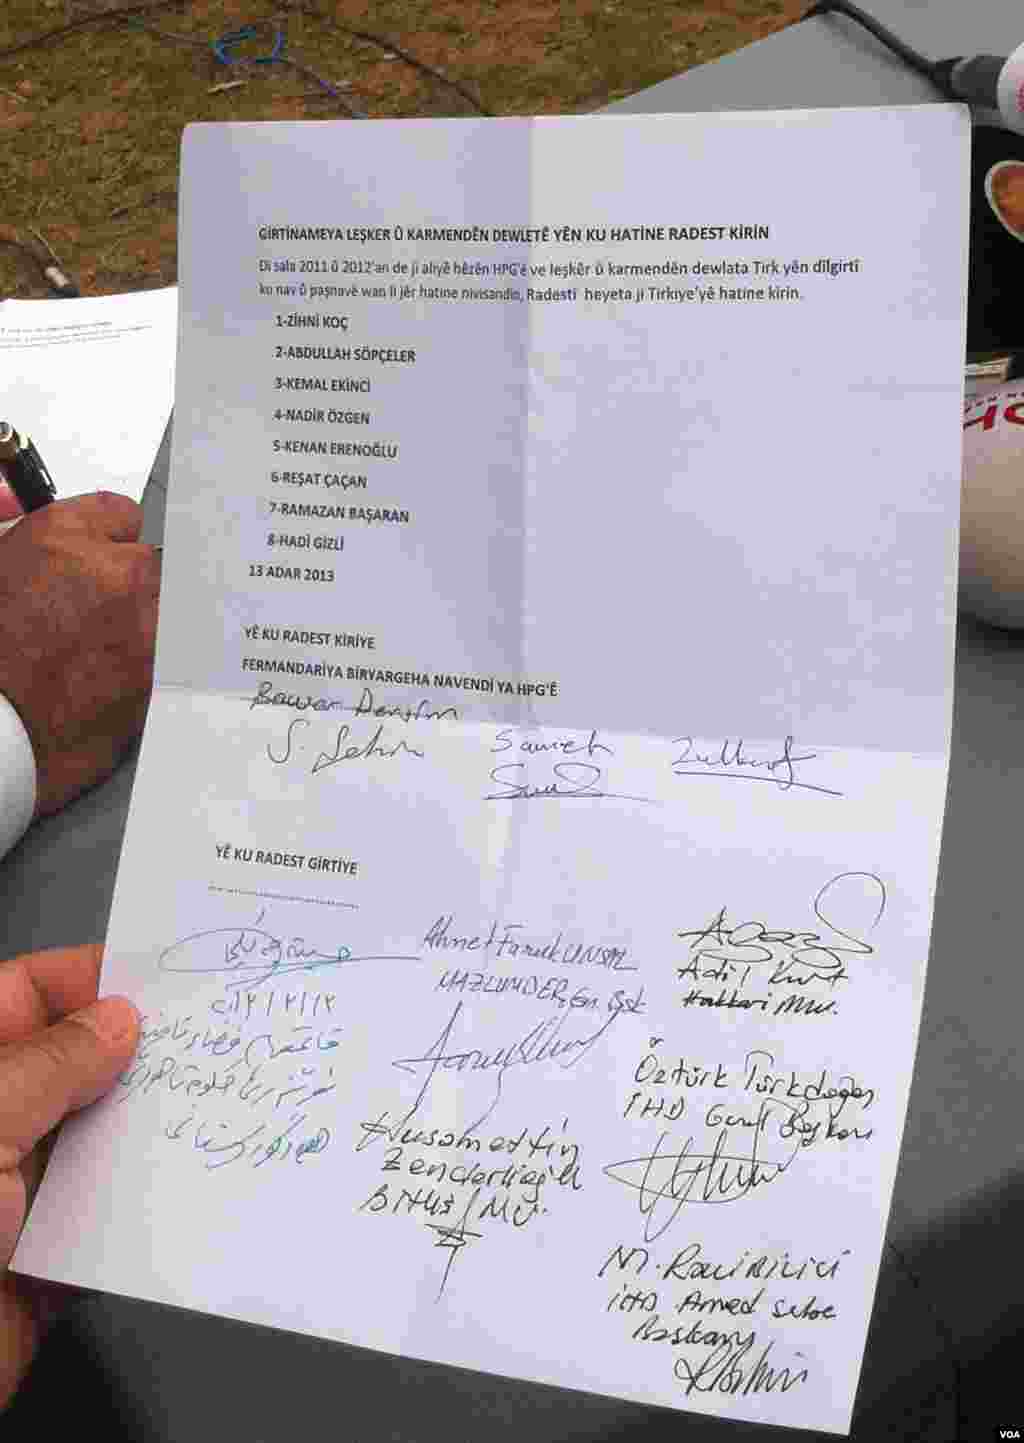 GIRTINAMEYA LEŞKER Û KARMENDÊN DEWLETÊ YÊN KU HATINE RADEST KIRIN
Di sala 2011 û 2012'an de ji aliyê hêzên HPG'ê ve leşkêr û karmendên dewlata Tirk yên dîlgirtî
ku nav û paşnavê wan li jêr hatine nivisandin, Radesti heyeta ji Tirkiye'yê hatine kirin.
1-ZİHNİ KOÇ
2-ABDULLAH SÖPÇELER
3-KEMAL EKİNCİ
4-NADİR ÖZGEN
5-KENAN ERENOĞLU
6-REŞAT ÇAÇAN
7-RAMAZAN BAŞARAN
8-HADİ GİZLİ
13 ADAR 2013
YÊ KU RADEST KİRİYE
FERMANDARİYA BİRYARGEHA NAVENDİ YA HPG'Ê
Bawer Dersim
YÊ KU RADEST GIRTIYE
Ahmet Faruk ÜNSAL
MAZLUMDER Gn. Bşk
Adil Kurt
Hakkari Mv.
Öztürk Türkdoğan
İHD Genel Başkanı
Husamettin
Zenderlioğlu
Bitlis Mv.
M. Raci Bilici
İHD Amed Şube
Başkanı
VOA